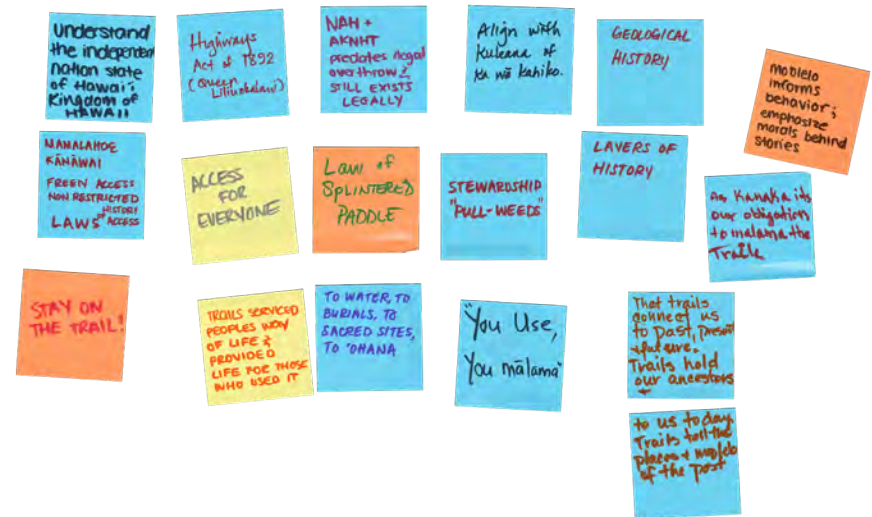 Understand
the independent
nation state
of Hawaiʻi;
Kingdom of
HAWAII
Highways
Act of 1892
(Queen
Liliuokalani)
NAH +
AKNHT
predates illegal
overthrow &
STILL EXISTS
LEGALLY
Align with
Kuleana of
Ka wā kahiko.
GEOLOGICAL
HISTORY
moolelo
informs
behavior;
emphasize
morals behind
stories
MAMALAHOE
KĀNĀWAI
FREEN ACCESS
NON RESTRICTED
HISTORY
LAWS OF ACCESS
ACCESS
FOR
EVERYONE
Law of
SPLINTERED
PADDLE
STEWARDSHIP
"PULL-WEEDS"
LAYERS OF
HISTORY
As Kanaka its
our obligation
to malama the
Trails
STAY ON
THE TRAIL!
TRAILS SERVICED
PEOPLES WAY
OF LIFE &
PROVIDED
LIFE FOR THOSE
WHO USED IT
TO WATER, TO
BURIALS, TO
SACRED SITES,
TO ʻOHANA
"You Use,
You mālama"
That trails
connect us
to past, present
+ future.
Trails hold
our ancestors
to us today
Trails tell the
places +
of the past